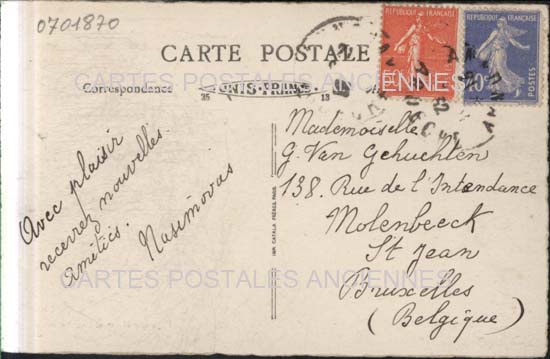 0701870
CARTE POSTALE
REPUBLIQUE FRANÇAISE
REPUBLIQUE FRANÇAISE
CARTES POSTALES ANCIENNES
Correspondance
Avec plaisir
recevrez nouvelles.
Amitiés.
Nasimovas
Mademoiselle
G. Van Gehuchten
138. Rue de l'Intendance
Molenbeeck
St Jean
Bruxelles
(Belgique)
CARTES POSTALES ANCIENNES
IMP. CATALA FRÈRES, PARIS